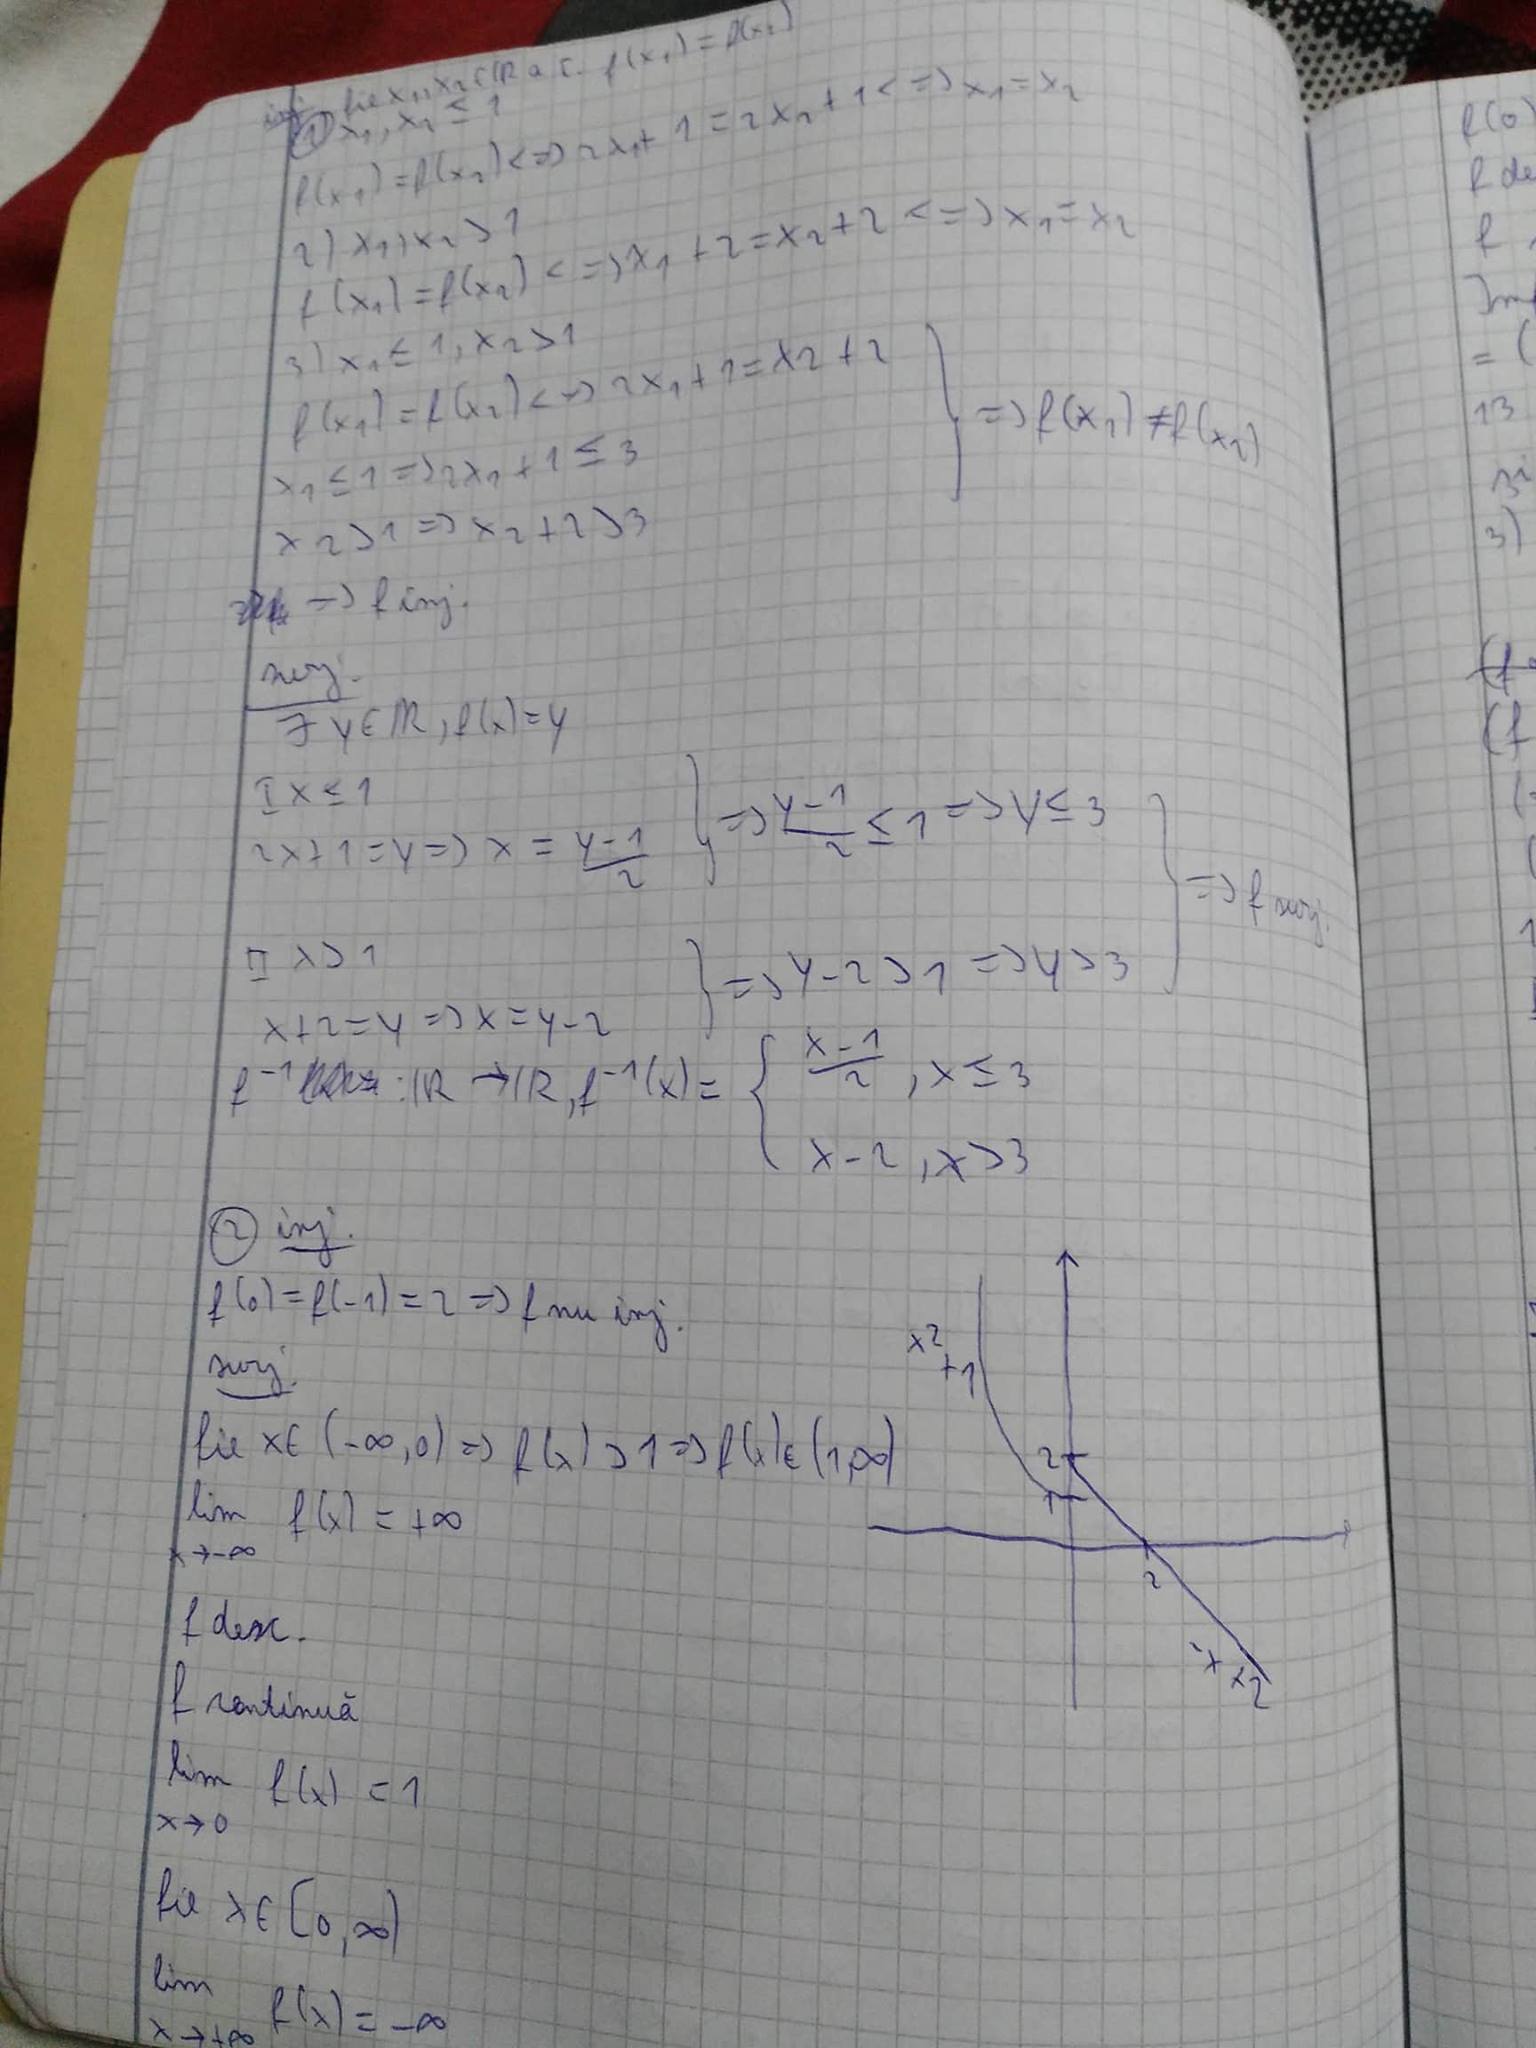 inj. fie x₁, x₂ ∈ ℝ a.î. f(x₁) = f(x₂)
① x₁, x₂ ≤ 1
f(x₁) = f(x₂) <=> 2x₁ + 1 = 2x₂ + 1 <=> x₁ = x₂
2) x₁, x₂ > 1
f(x₁) = f(x₂) <=> x₁ + 2 = x₂ + 2 <=> x₁ = x₂
3) x₁ ≤ 1, x₂ > 1
f(x₁) = f(x₂) <=> 2x₁ + 1 = x₂ + 2
x₁ ≤ 1 => 2x₁ + 1 ≤ 3
x₂ > 1 => x₂ + 2 > 3
} => f(x₁) ≠ f(x₂)
=> f inj.
surj.
∃ y ∈ ℝ, f(x) = y
I x ≤ 1
2x + 1 = y => x = (y-1)/2 } => (y-1)/2 ≤ 1 => y ≤ 3
II x > 1
x + 2 = y => x = y - 2 } => y - 2 > 1 => y > 3
} => f surj.
f⁻¹ : ℝ → ℝ, f⁻¹(x) = { (x-1)/2, x ≤ 3
x - 2, x > 3
② inj.
f(0) = f(-1) = 2 => f nu inj.
surj.
fie x ∈ (-∞, 0) => f(x) > 1 => f(x) ∈ (1, ∞)
lim x→-∞ f(x) = +∞
f desc.
f continuă
lim x→0 f(x) = 1
fie x ∈ [0, ∞)
lim x→+∞ f(x) = -∞
x² + 1
2
1
2
f(0)
f de
f
Im f
= (
13
3)
(f
(f